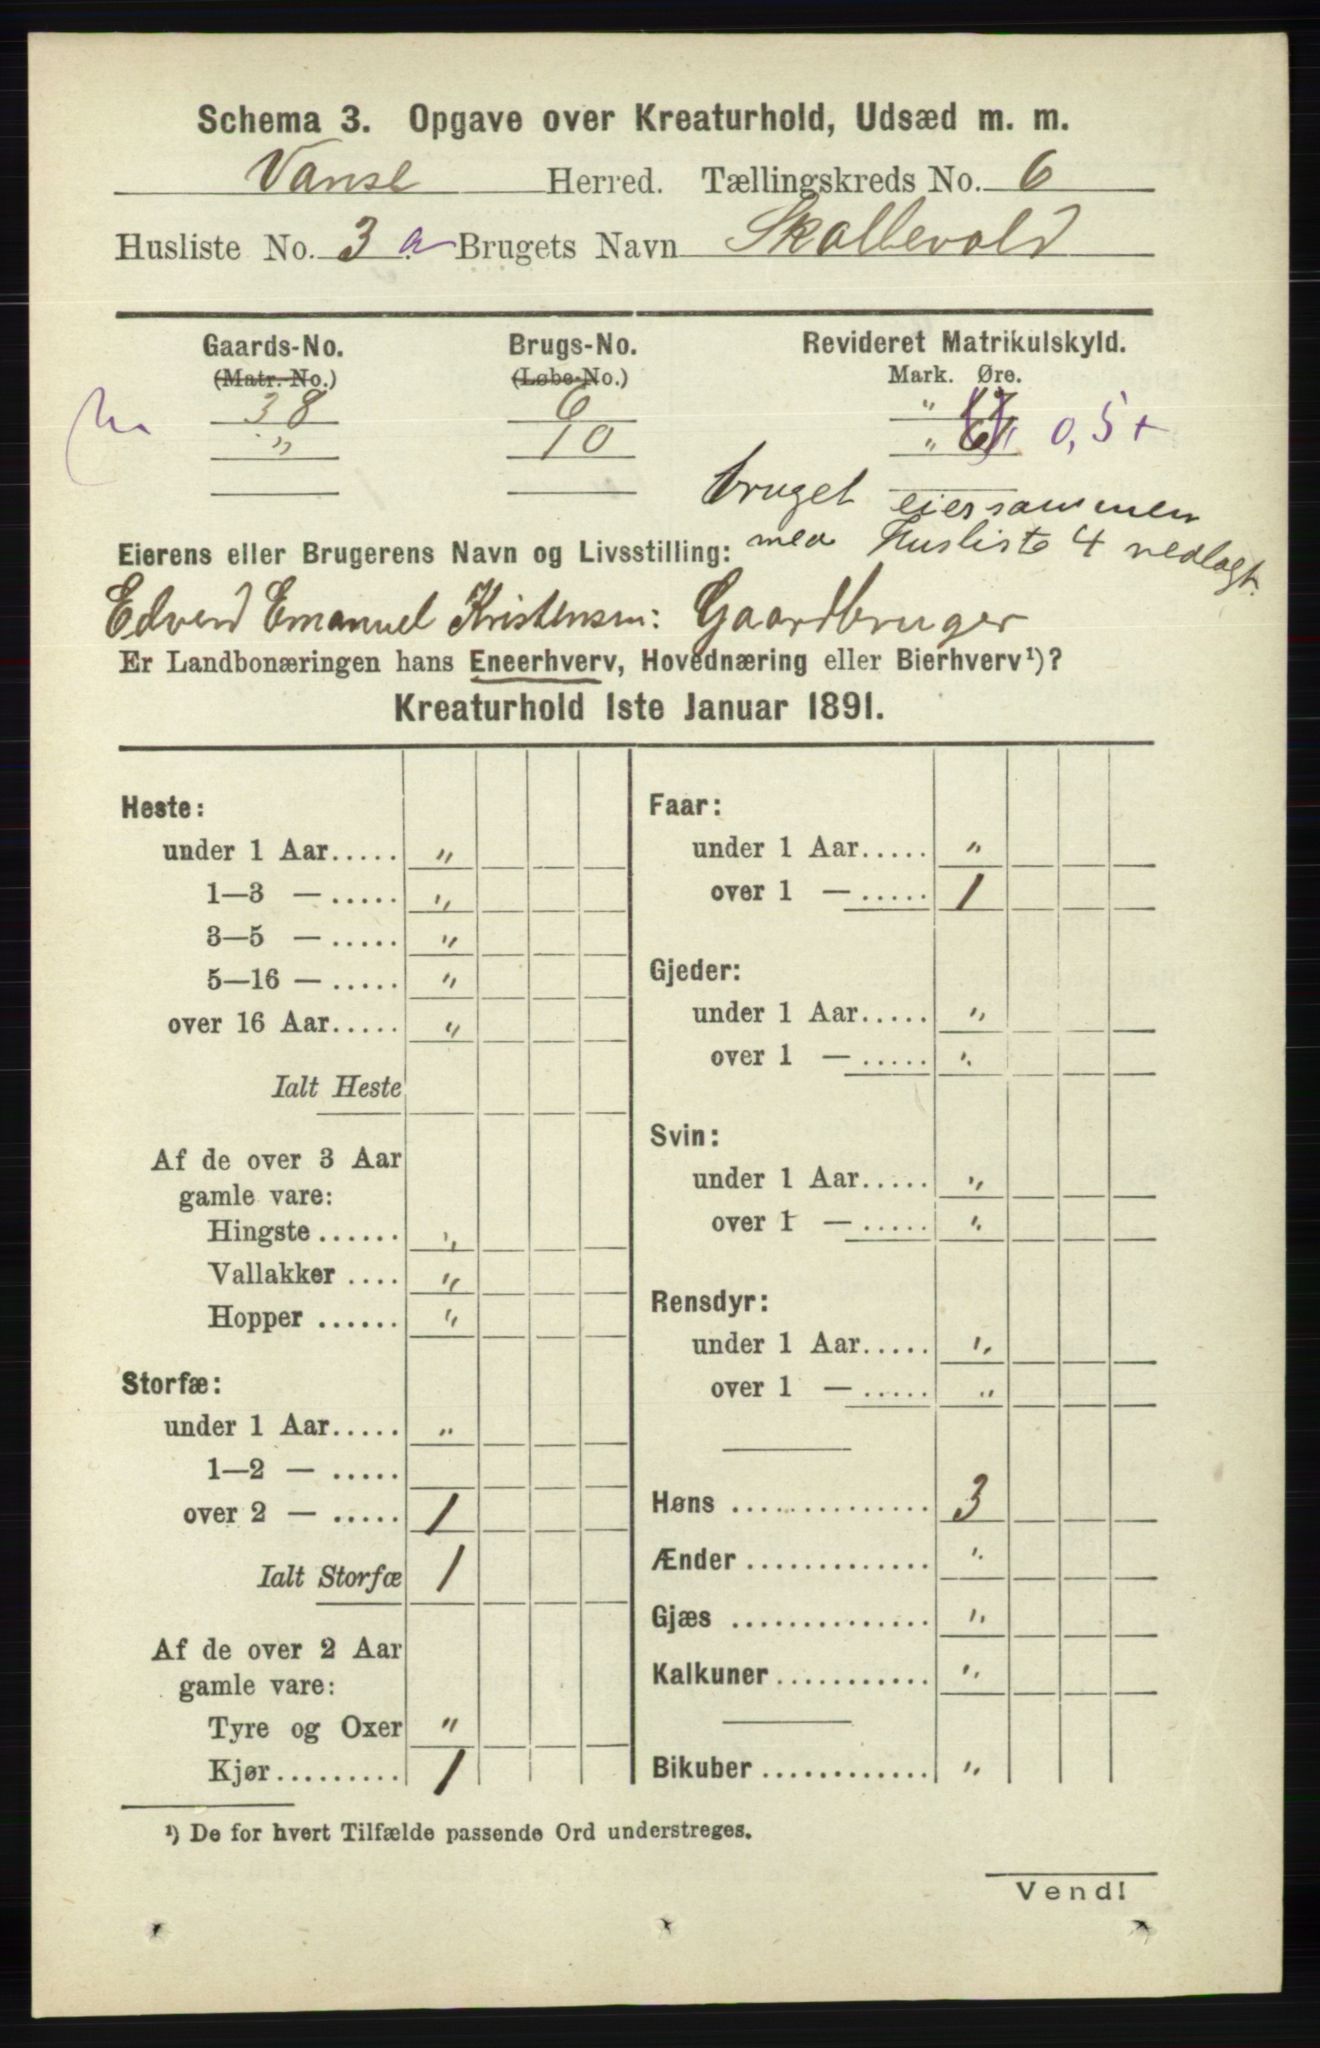 Schema 3. Opgave over Kreaturhold, Udsæd m. m.
Vanse Herred. Tællingskreds No. 6
Husliste No. 3 a Brugets Navn Skallevold
Gaards-No. Brugs-No. Revideret Matrikulskyld.
(Matr.-No.) (Løbe-No.) Mark. Øre.
38 6 "
" 10 " 0,5+
bruget eiersammen
med Husliste 4 vedlagt.
Eierens eller Brugerens Navn og Livsstilling:
Edverd Emanuel Kristensen: Gaardbruger
Er Landbonæringen hans Eneerhverv, Hovednæring eller Bierhverv¹)?
Kreaturhold 1ste Januar 1891.
Heste:
under 1 Aar..... "
1—3 — ..... "
3—5 — ..... "
5—16 — ..... "
over 16 Aar..... "
Ialt Heste
Af de over 3 Aar
gamle vare:
Hingste...... "
Vallakker .... "
Hopper ...... "
Storfæ:
under 1 Aar..... "
1—2 — .....
over 2 — ..... 1
Ialt Storfæ 1
Af de over 2 Aar
gamle vare:
Tyre og Oxer "
Kjør......... 1
Faar:
under 1 Aar..... "
over 1 — ..... 1
Gjeder:
under 1 Aar..... "
over 1 — ..... "
Svin:
under 1 Aar..... "
over 1 — ..... "
Rensdyr:
under 1 Aar..... "
over 1 — ..... "
Høns .............. 3
Ænder ............. "
Gjæs .............. "
Kalkuner ........... "
Bikuber ............ "
¹) De for hvert Tilfælde passende Ord understreges.
Vend!